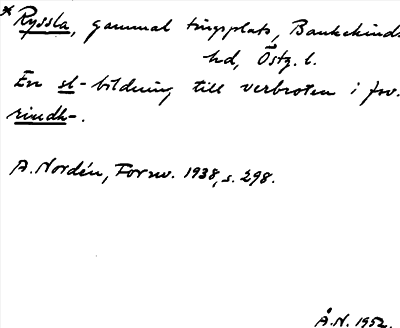 * Ryssla, gammal tingsplats, Bankekinds
hd, Östg. l.
En sl-bildning till verbroten i fsv.
rindh-.
A. Nordén, Fornv. 1938, s. 298.
Å.N. 1952.